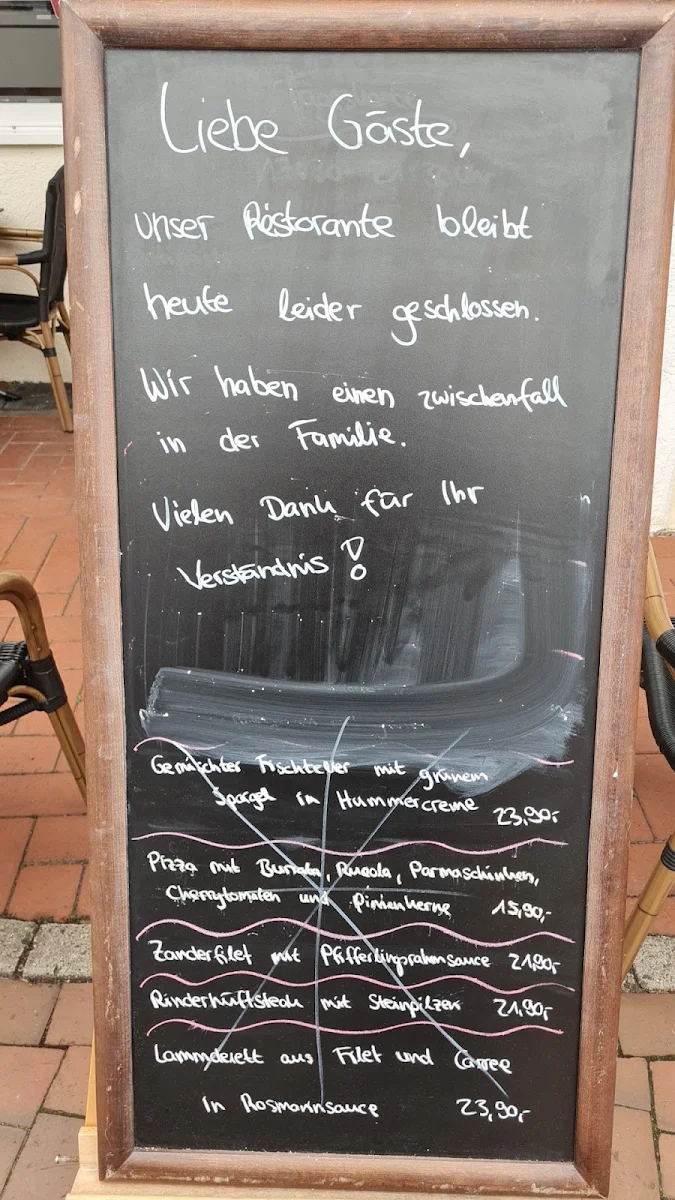 Liebe Gäste,
unser Ristorante bleibt
heute leider geschlossen.
Wir haben einen zwischenfall
in der Familie.
Vielen Dank für Ihr
Verständnis!
Gemischter Fischteller mit grünem
Spargel in Hummercreme 23,90,-
Pizza mit Burrata, Rucola, Parmaschinken,
Cherrytomaten und Pinienkerne 15,90,-
Zanderfilet mit Pfifferlingrahmsauce 21,90,-
Rinderhüftsteak mit Steinpilzen 21,90,-
Lammduett aus Filet und Carree
in Rosmarinsauce 23,90,-